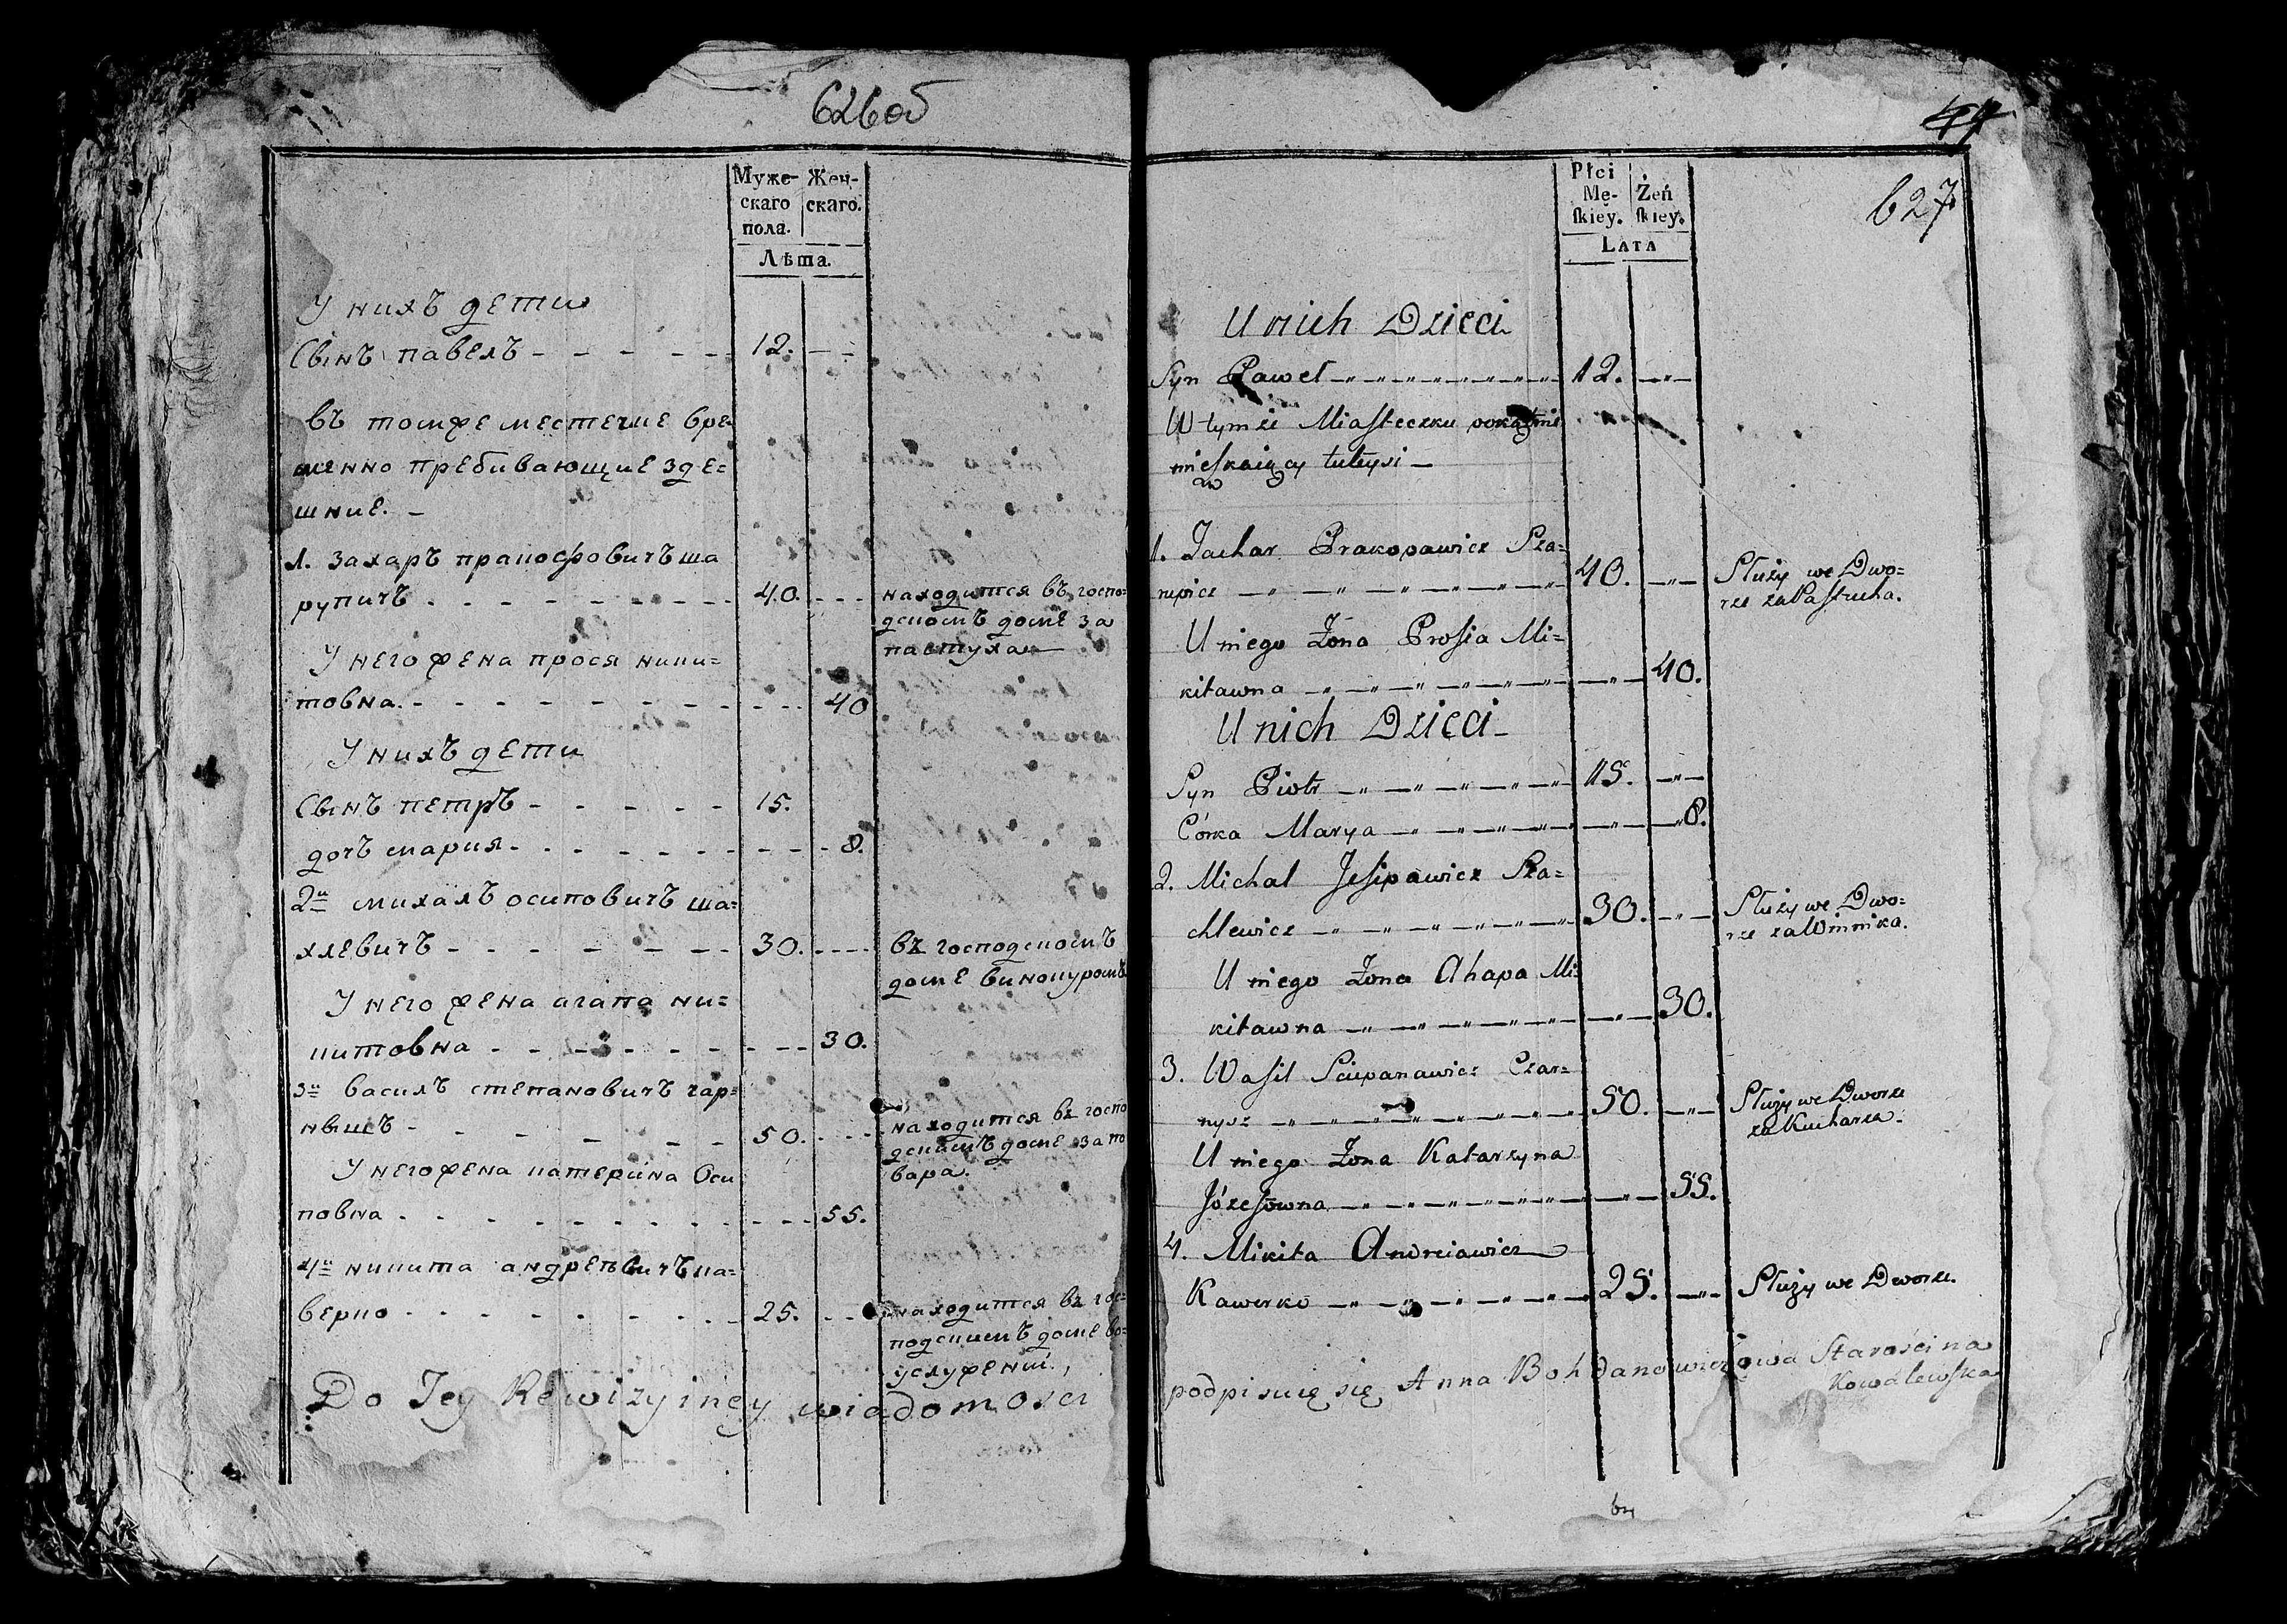 626об
Муже- Жен-
скаго скаго.
пола.
Лѣта.
У нихъ дети
Сынъ павелъ - - - - - 12. - -
въ томже местечке вре-
менно пребивающие зде=
шние. -
1. Захаръ пракофовичъ ша
рупичъ - - - - - - - 40. - - находится въ госпо=
дскомъ доме за
пастуха —
У него жена прося мики=
товна. - - - - - - - - - 40
У нихъ дети
Сынъ петръ - - - - - 15.
дочъ мария - - - - - - - - 8.
2й михалъ осиповичъ ша=
хлевичъ - - - - - - - 30. - - - въ господскомъ
доме винокуромъ
У него жена агапа ми=
китовна - - - - - - - - - 30.
3й василъ степановичъ чар=
нышъ - - - - - - - 50. - - - находится въ госпо
дскомъ доме за по
вара.
У него жена катерина Оси
повна - - - - - - - - - 55.
4й никита андреевичъ ка=
верко - - - - - - - 25. - - находится въ гос=
подскимъ доме во=
услужении,
Do Jey Rewizyiney wiadomosci
47
627
Płci
Mę- Żeń
ſkiey. ſkiey.
Lata
U nich Dzieci
Syn Paweł —"—"—"—"— 12. —"—
W tymże Miaſteczku
mieſzkaiący tuteysi —
1. Zachar Prakopawicz Sza=
rupicz —"—"—"—"—"— 40. —"— Służy we Dwo=
rze za Paſtucha.
U niego Żona Prosia Mi=
kitawna —"—"—"—"—"— —"— 40.
U nich Dzieci —
Syn Piotr —"—"—"—"—"— 15. —"—
Córka Marya —"—"—"—"— —"— 8.
2. Michał Jesipawicz Sza=
chlewicz —"—"—"—"—"— 30. —"— Służy we Dwo=
rze za Winnika.
U niego Żona Ahapa Mi=
kitawna —"—"—"—"—"— —"— 30.
3. Wasil Sciepanawicz Czar=
nysz —"—"—"—"—"— 50. —"— Służy we Dworze
za Kucharza.
U niego Żona Katarzyna
Józefówna —"—"—"—"— —"— 55.
4. Mikita Andreiawicz
Kawerko —"—"—"—"— 25. —"— Służy we Dworze.
podpisuię się Anna Bohdanowiczowa Starościna
Kowalewſka